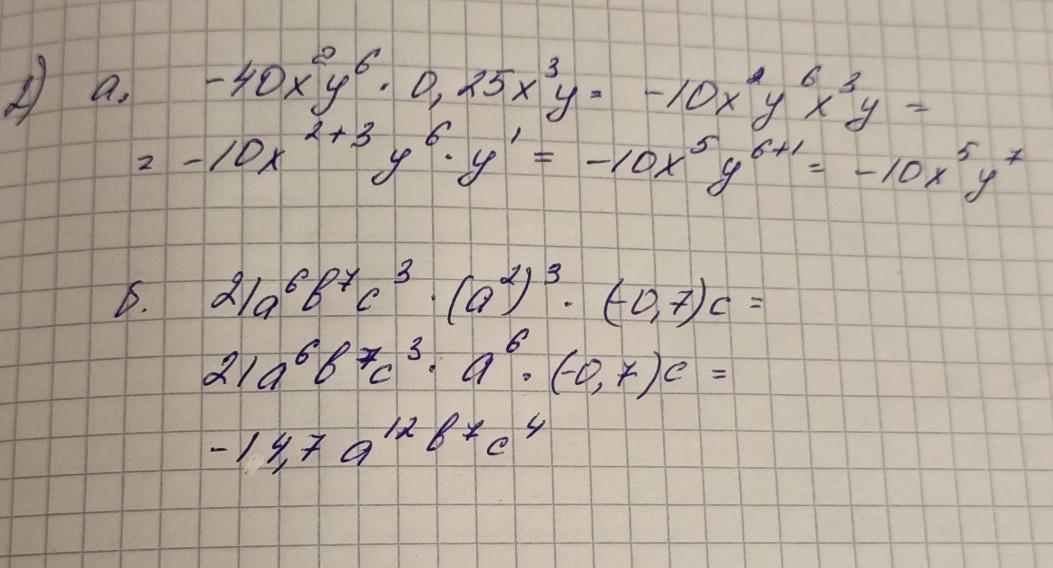 1) a. -40x²y⁶ · 0,25x³y = -10x²y⁶x³y =
= -10x²⁺³y⁶ · y¹ = -10x⁵y⁶⁺¹ = -10x⁵y⁷
б. 21a⁶b⁷c³ · (a²)³ · (-0,7)c =
21a⁶b⁷c³ · a⁶ · (-0,7)c =
-14,7 a¹²b⁷c⁴